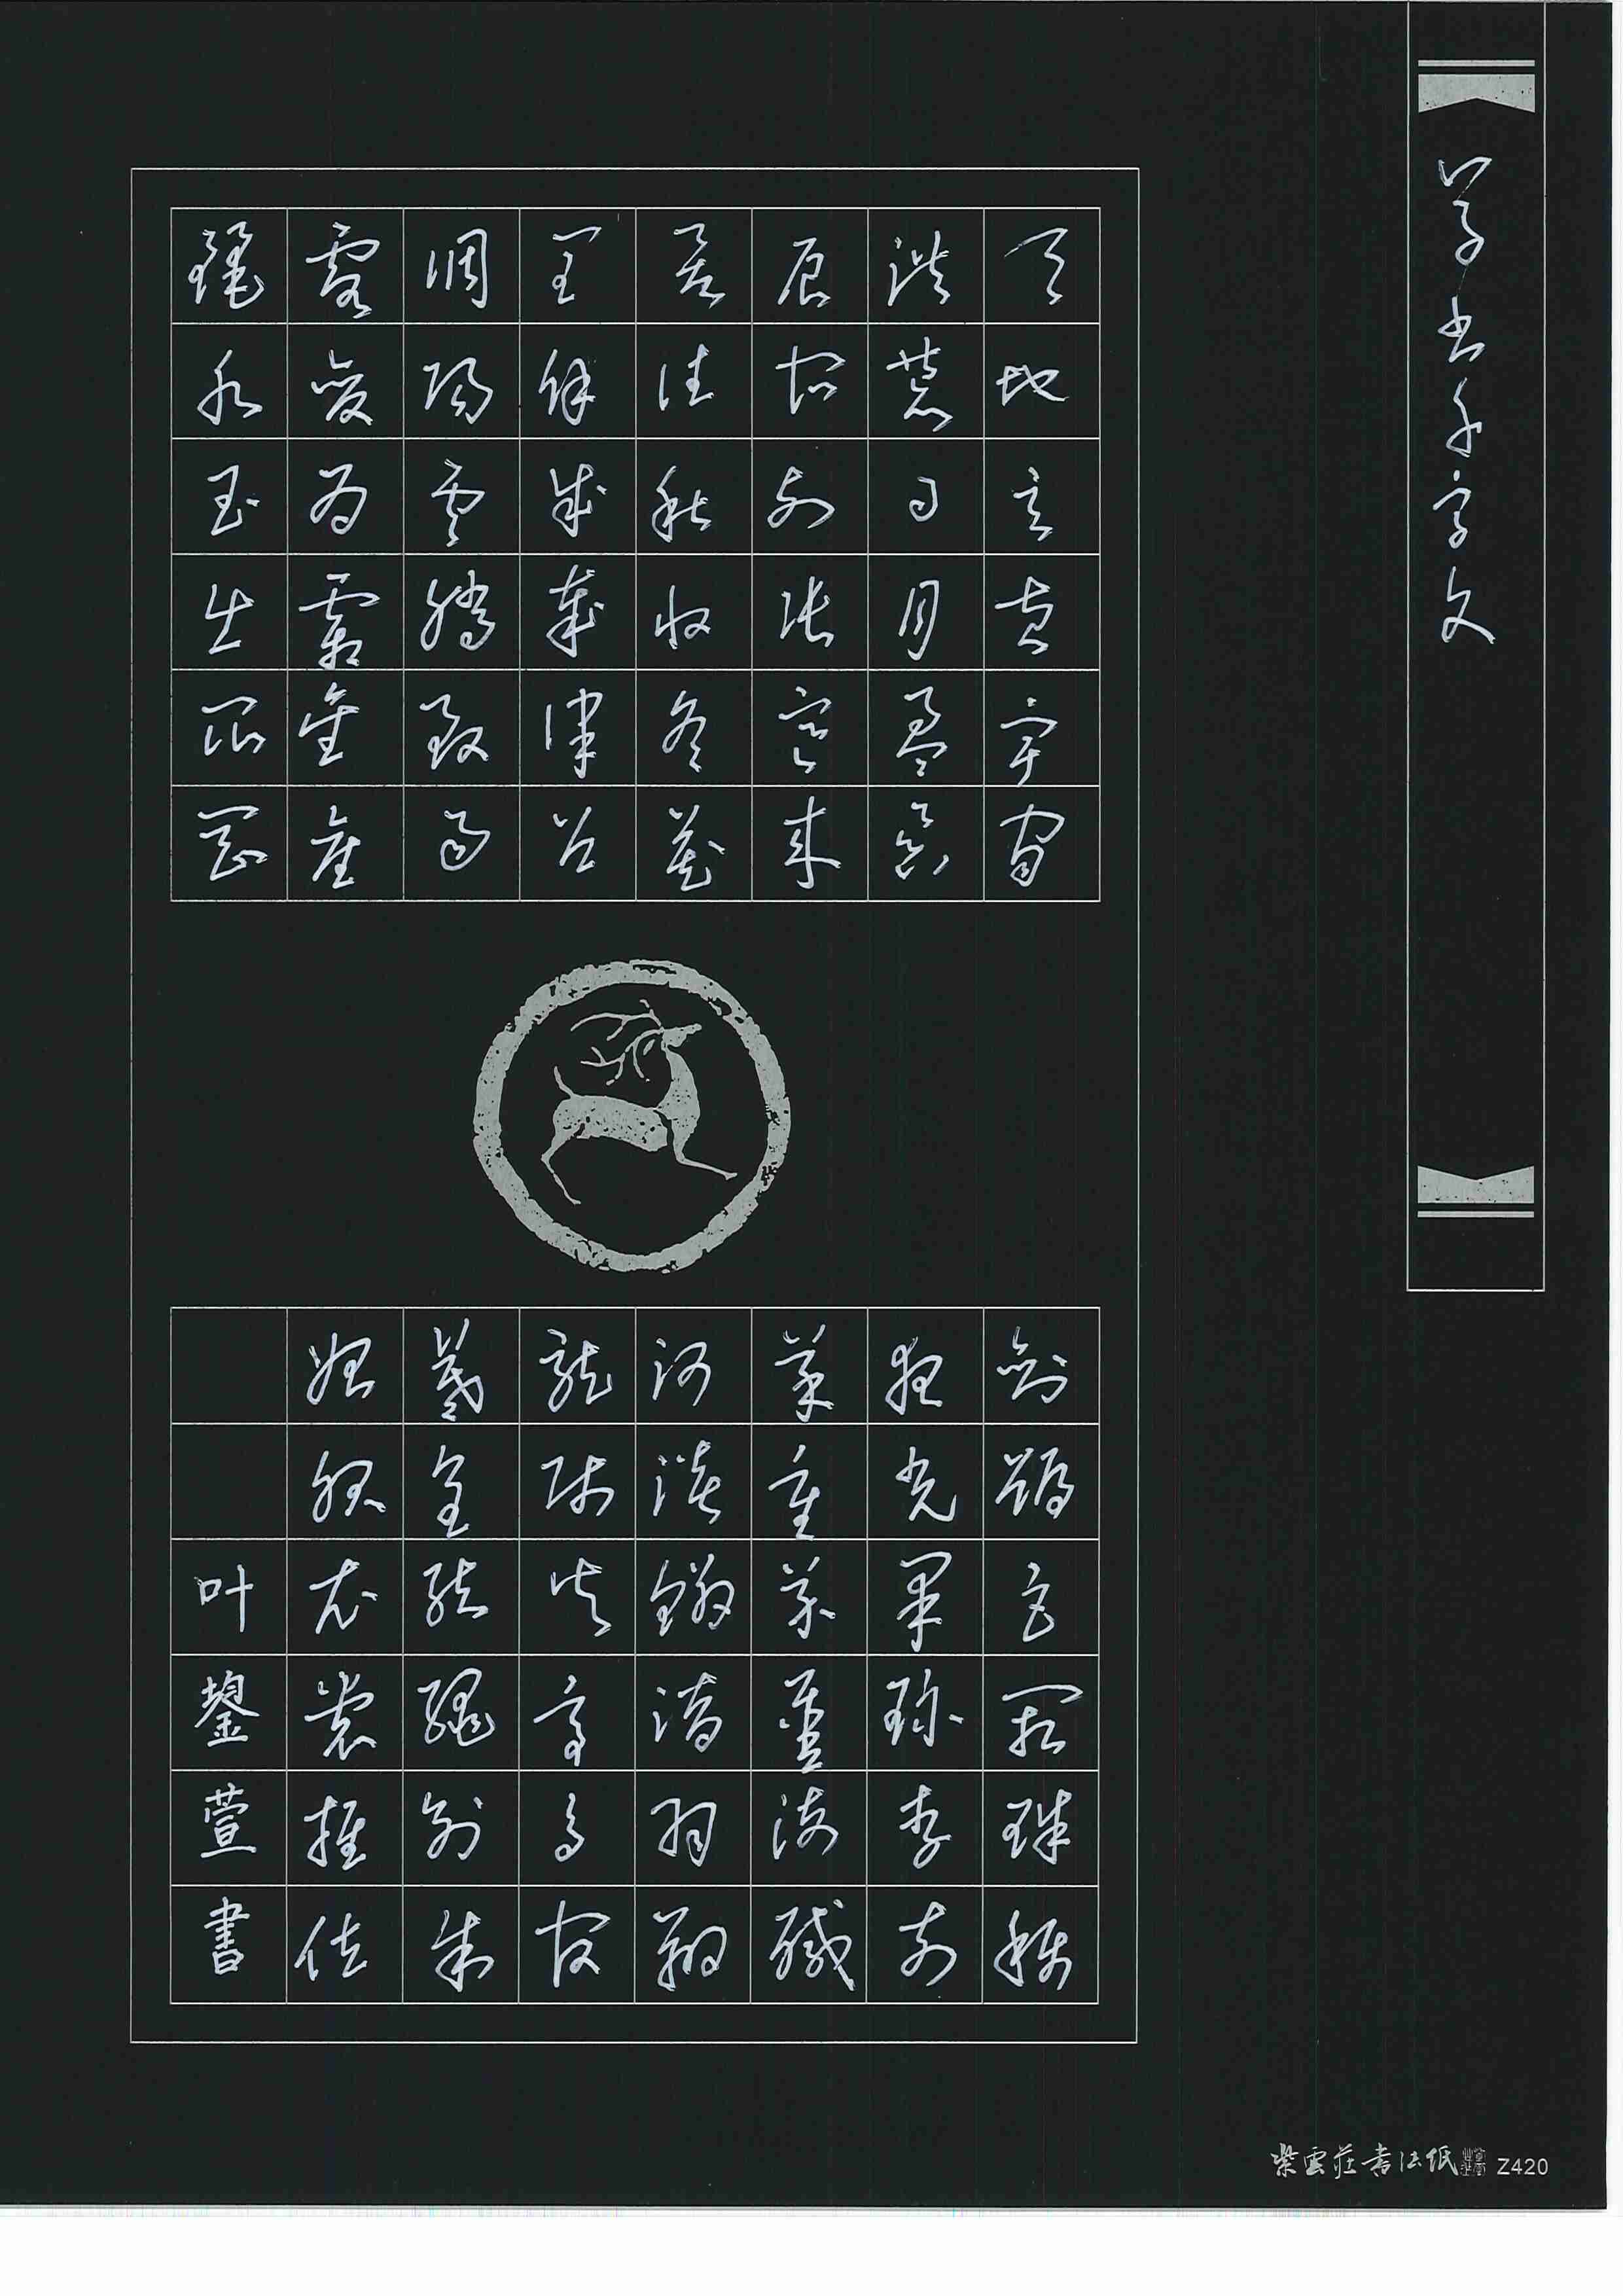 草書千字文
天地玄黃宇宙
洪荒日月盈昃
辰宿列張寒來
暑往秋收冬藏
閏餘成歲律呂
調陽雲騰致雨
露結為霜金生
麗水玉出崑岡
劍號巨闕珠稱
夜光果珍李柰
菜重芥薑海鹹
河淡鱗潛羽翔
龍師火帝鳥官
人皇始制文字
乃服衣裳推位
叶鋆萱書
紫雲莊書法紙 Z420